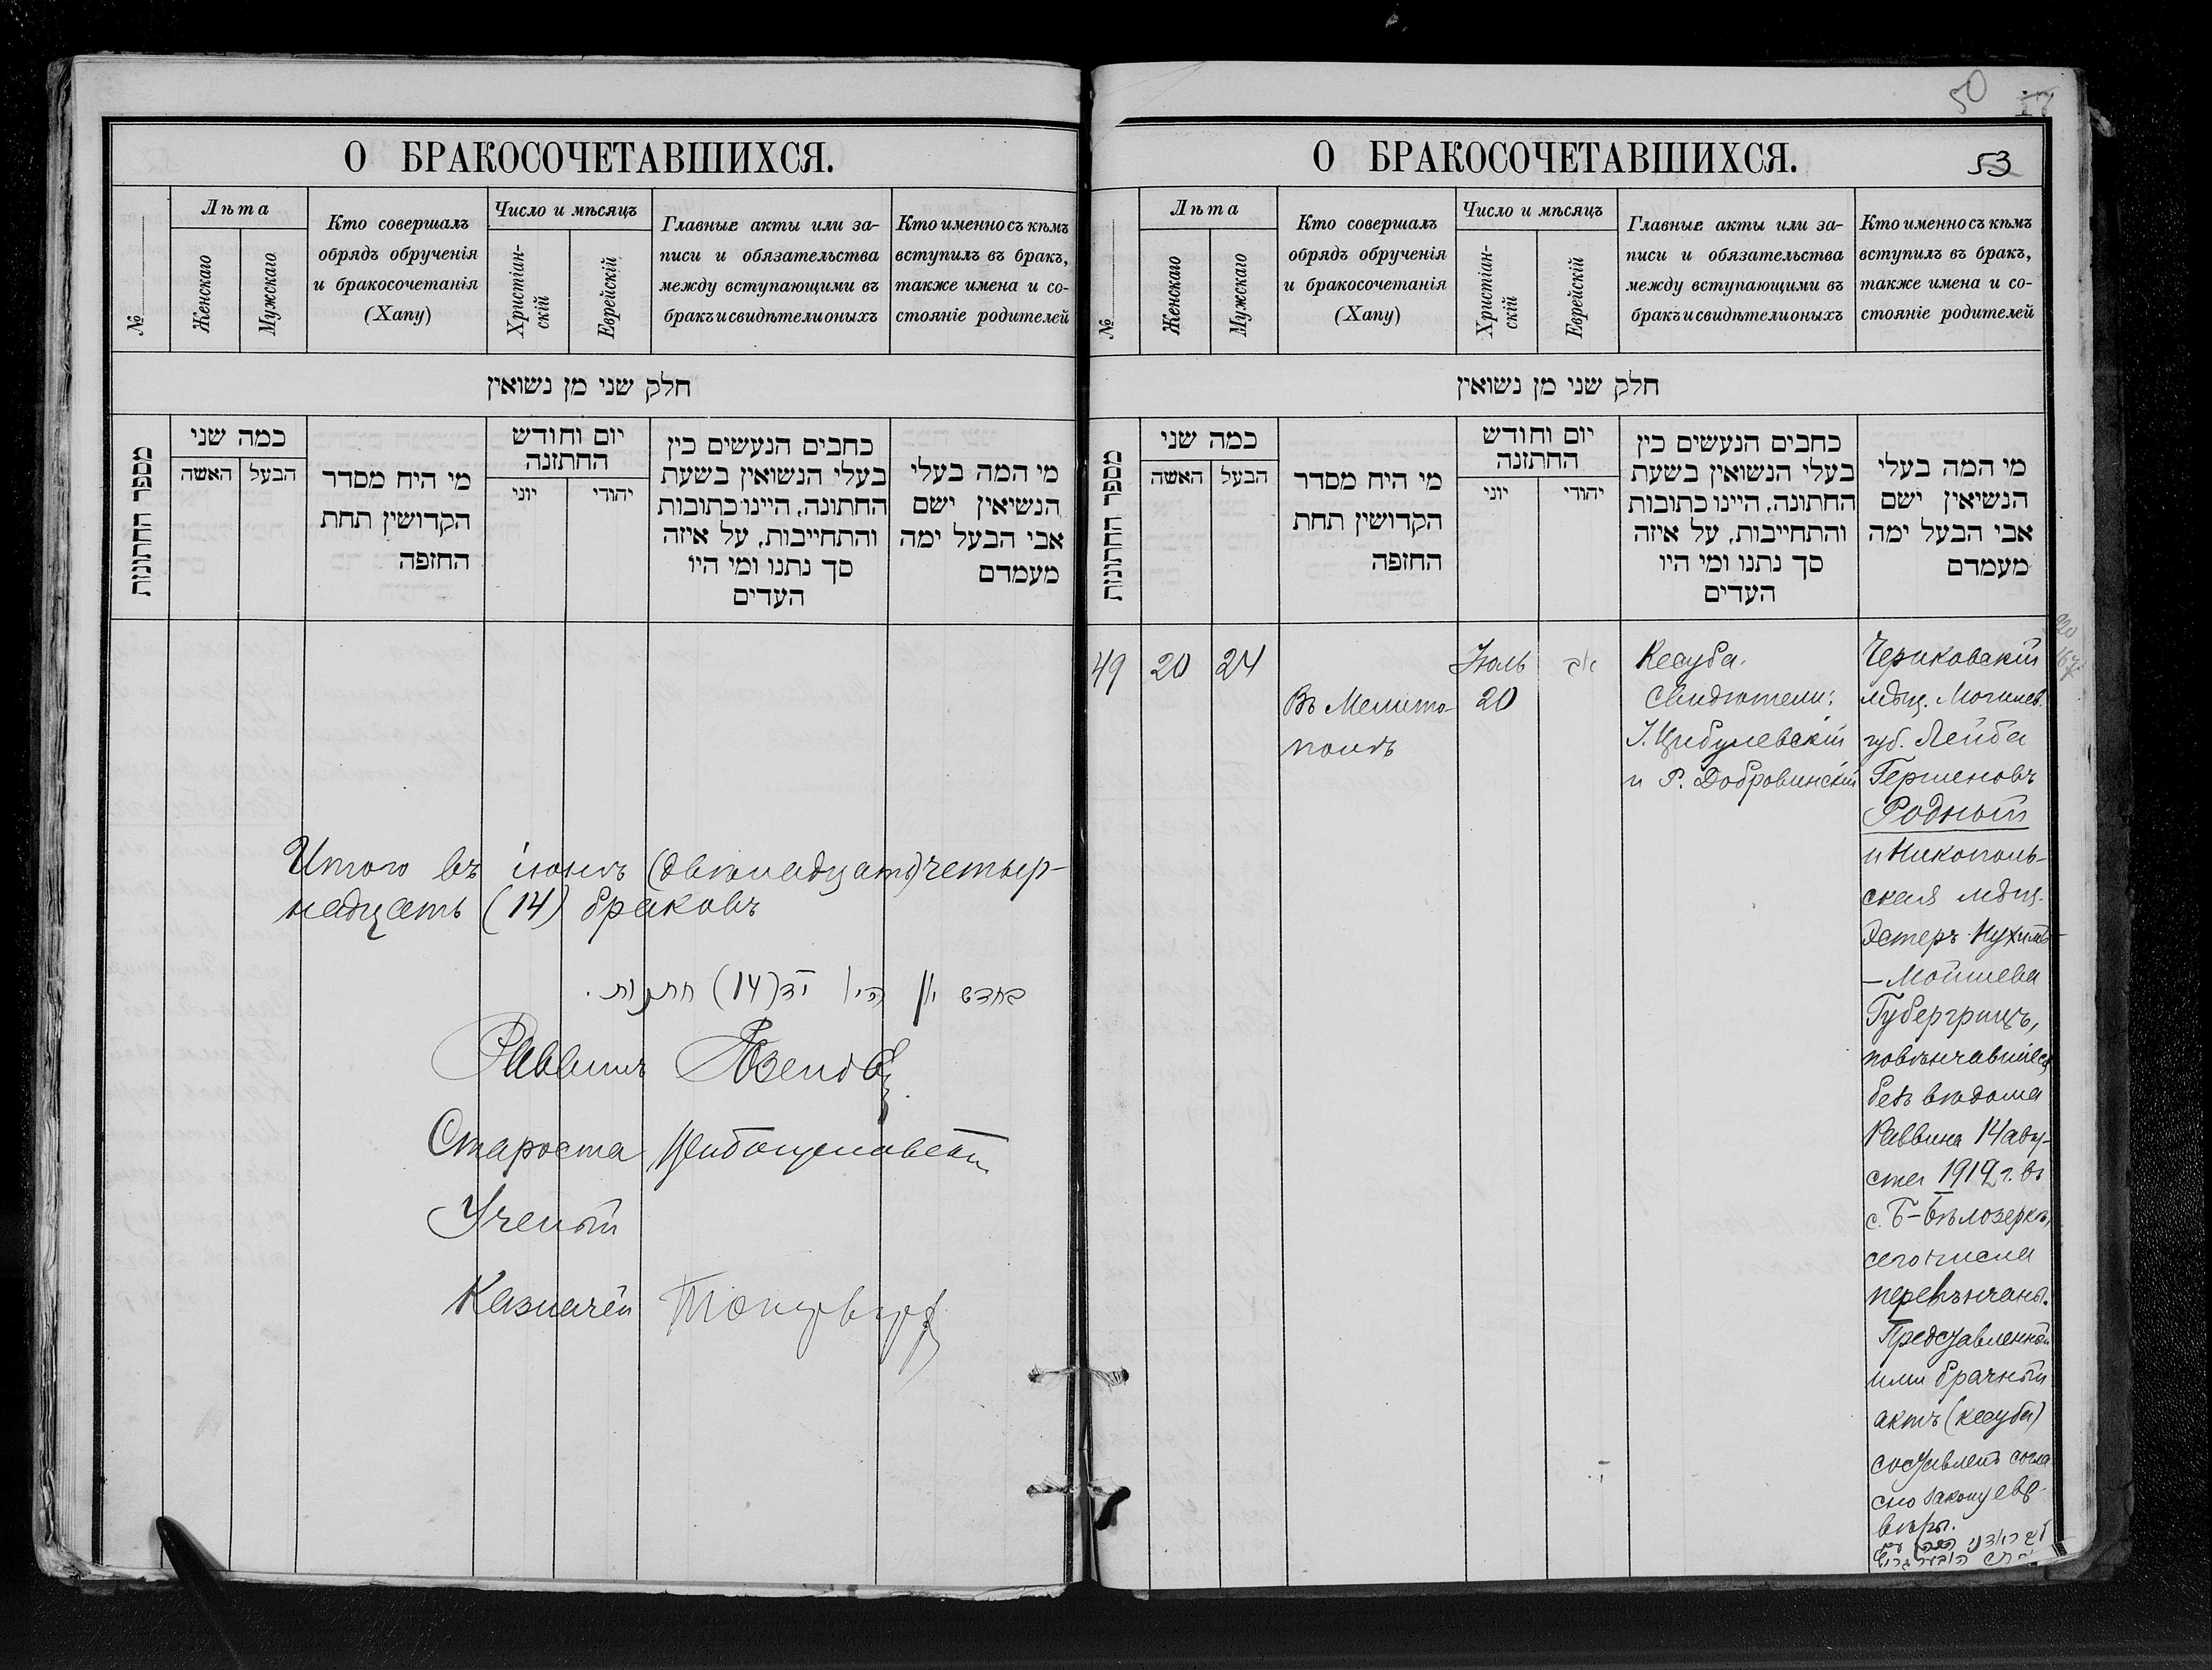 О БРАКОСОЧЕТАВШИХСЯ.
№
Лѣта
Женскаго
Мужскаго
Кто совершалъ
обрядъ обрученія
и бракосочетанія
(Хапу)
Число и мѣсяцъ
Христіан-
скій
Еврейскій
Главные акты или за-
писи и обязательства
между вступающими въ
бракъ и свидѣтели оныхъ
Кто именно съ кѣмъ
вступилъ въ бракъ,
также имена и со-
стояніе родителей
חלק שני מן נשואין
מספר החתונות
כמה שני
האשה
הבעל
מי היח מסדר
הקדושין תחת
החזפה
יום וחודש
החתזנה
יוני
יהודי
כחבים הנעשים כין
בעלי הנשואין בשעת
החתונה, היינו כתובות
והתחייבות, על איזה
סך נתנו ומי היו
העדים
מי המה בעלי
הנשיאין ישם
אבי הבעל ימה
מעמדם
Итого въ іюнѣ (двѣнадцать) четыр-
надцать (14) браковъ
בחדש יון היו י״ד (14) חתונות.
Раввинъ
Староста
Ученый
Казначей
50
53
О БРАКОСОЧЕТАВШИХСЯ.
№
Лѣта
Женскаго
Мужскаго
Кто совершалъ
обрядъ обрученія
и бракосочетанія
(Хапу)
Число и мѣсяцъ
Христіан-
скій
Еврейскій
Главные акты или за-
писи и обязательства
между вступающими въ
бракъ и свидѣтели оныхъ
Кто именно съ кѣмъ
вступилъ въ бракъ,
также имена и со-
стояніе родителей
חלק שני מן נשואין
מספר החתונות
כמה שני
האשה
הבעל
מי היח מסדר
הקדושין תחת
החזפה
יום וחודש
החתזנה
יוני
יהודי
כחבים הנעשים כין
בעלי הנשואין בשעת
החתונה, היינו כתובות
והתחייבות, על איזה
סך נתנו ומי היו
העדים
מי המה בעלי
הנשיאין ישם
אבי הבעל ימה
מעמדם
49
20
24
Въ Мелито-
полѣ
Іюль
20
אב
Кесуба.
Свидѣтели:
І. Цибулевскій
и Р. Добровинскій
Чериковскій
мѣщ. Могилев.
губ. Лейба
Гершеновъ
Родный
и Никополь-
ская мѣщ.
Эстеръ Нухимъ-
-Мойшева
Губергрицъ,
повѣнчавшіеся
безъ вѣдома
Раввина 14 авгу-
ста 1912 г. въ
с. Б-Бѣлозеркѣ,
сего числа
перевѣнчаны.
Представленный
ими брачный
актъ (кесуба)
составленъ согла
сно закону евр.
вѣры.